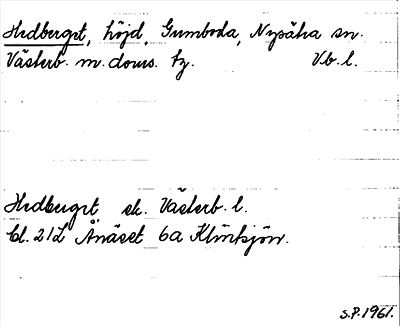 Hedberget, höjd, Gumboda, Nysätra sn.
Västerb. m. doms. tg. Vb. l.
Hedberget ek. Västerb. l.
bl. 21L Ånäset 6a Klintsjön.
S.P. 1961.